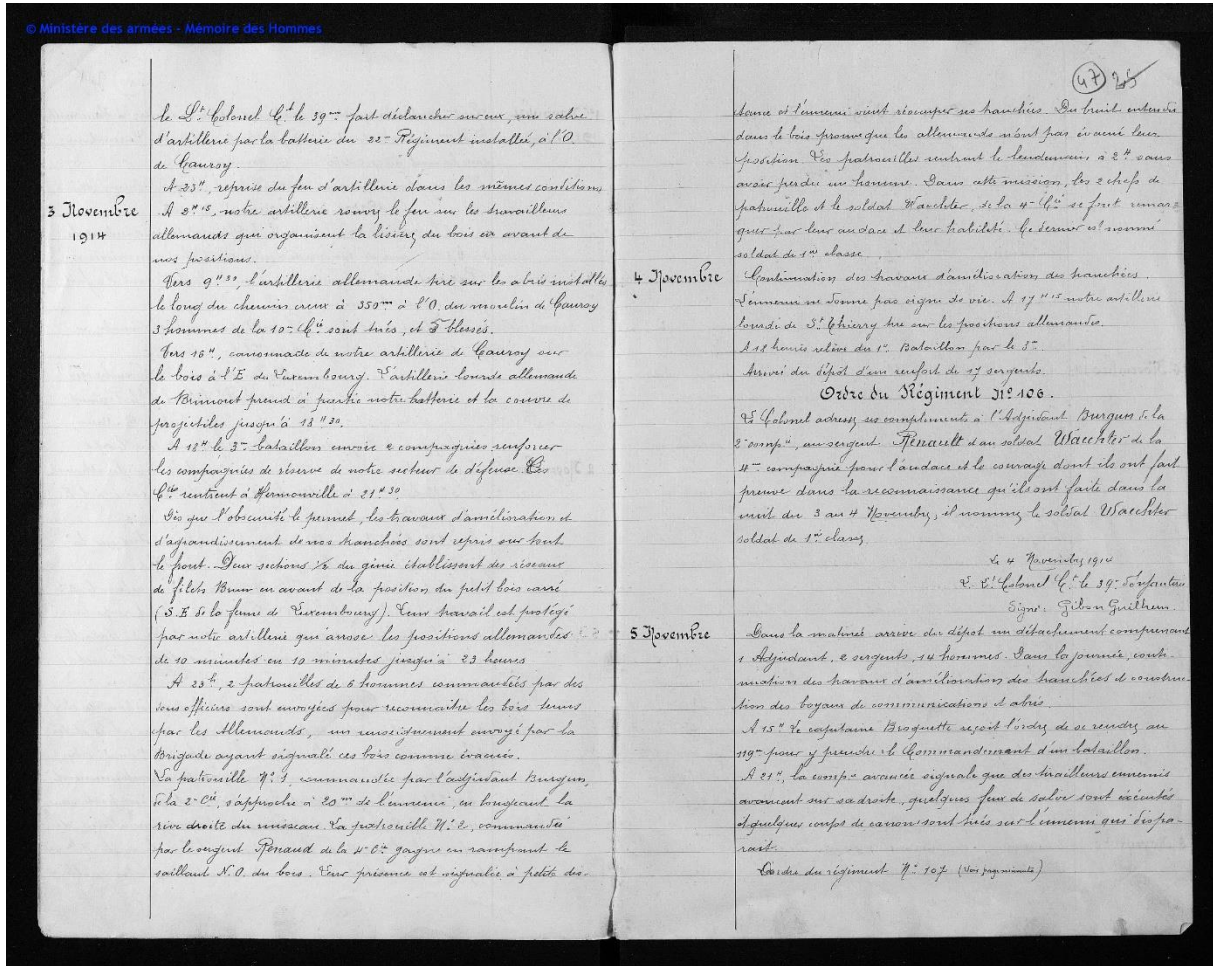 © Ministère des armées - Mémoire des Hommes
47 25
le Lt Colonel Ct le 39me fait déclancher sur eux, une salve
d'artillerie par la batterie du 22me Régiment installée, à l'O.
de Cauroy.
A 23H, reprise du feu d'artillerie dans les mêmes conditions
3 Novembre
1914
A 2H15, notre artillerie rouvre le feu sur les travailleurs
allemands qui organisent la lisière du bois en avant de
nos positions.
Vers 9H30, l'artillerie allemande tire sur les abris installés
le long du chemin creux à 350m à l'O. du moulin de Cauroy
3 hommes de la 10me Cie sont tués, et 5 blessés.
Vers 16H, canonnade de notre artillerie de Cauroy sur
le bois à l'E de Luxembourg. L'artillerie lourde allemande
de Brimont prend à partie notre batterie et la couvre de
projectiles jusqu'à 18H30.
A 18H le 3me bataillon envoie 2 compagnies renforcer
les compagnies de réserve de notre secteur de défense. Ces
Cies rentrent à Hermonville à 21H30.
Dès que l'obscurité le permet, les travaux d'amélioration et
d'agrandissement de nos tranchées sont repris sur tout
le front. Deux sections 1/2 du génie établissent des réseaux
de filets Brun en avant de la position du petit bois carré
(S.E de la ferme de Luxembourg). Leur travail est protégé
par notre artillerie qui arrose les positions allemandes
de 10 minutes en 10 minutes jusqu'à 23 heures
A 23h, 2 patrouilles de 6 hommes commandées par des
sous officiers sont envoyées pour reconnaître les bois tenus
par les Allemands, un renseignement envoyé par la
Brigade ayant signalé ces bois comme évacués.
La patrouille N° 1 commandée par l'adjudant Burgun
de la 2me Cie, s'approche à 20m de l'ennemi, en longeant la
rive droite du ruisseau. La patrouille N° 2, commandée
par le sergent Renaud de la 4me Cie gagne en rampant le
saillant N.O. du bois. Leur présence est signalée à petite dis-
tance et l'ennemi vient réoccuper ses tranchées. Du bruit entendu
dans le bois prouve que les allemands n'ont pas évacué leur
position. Les patrouilles rentrent le lendemain à 2H sans
avoir perdu un homme. Dans cette mission, les 2 chefs de
patrouille et le soldat Waechter, de la 4me Cie se font remar-
quer par leur audace et leur habilité. Ce dernier est nommé
soldat de 1re classe.
4 Novembre
Continuation des travaux d'amélioration des tranchées.
L'ennemi ne donne pas signe de vie. A 17H15 notre artillerie
lourde de St Thierry tire sur les positions allemandes.
A 18 heures relève du 1er Bataillon par le 3me
Arrivée du dépôt d'un renfort de 17 sergents.
Ordre du Régiment N° 106.
Le Colonel adresse ses compliments à l'Adjudant Burgun de la
2me compie, au sergent Renault et au soldat Waechter de la
4me compagnie pour l'audace et le courage dont ils ont fait
preuve dans la reconnaissance qu'ils ont faite dans la
nuit du 3 au 4 Novembre, il nomme le soldat Waechter
soldat de 1re classe
Le 4 Novembre 1914
Le Lt Colonel Ct le 39me d'Infanterie
Signé: Gibon Guilhem.
5 Novembre
Dans la matinée arrive du dépôt un détachement comprenant
1 Adjudant, 2 sergents, 14 hommes. Dans la journée, conti-
nuation des travaux d'amélioration des tranchées et construc-
tion des boyaux de communications et abris.
A 15H Le capitaine Broquette reçoit l'ordre de se rendre au
119me pour y prendre le Commandement d'un bataillon.
A 21H, la compie avancée signale que des tirailleurs ennemis
avancent sur sa droite, quelques feux de salve sont exécutés
et quelques coups de canon sont tirés sur l'ennemi qui dispa-
rait.
Ordre du régiment N° 107 (voir page suivante)